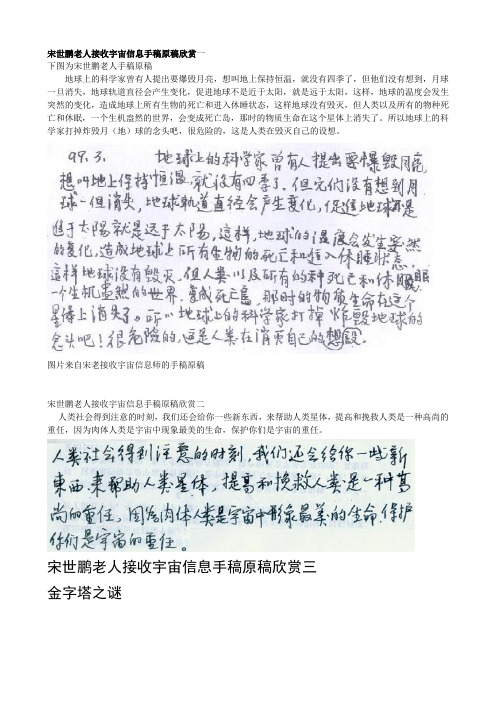 宋世鹏老人接收宇宙信息手稿原稿欣赏一
下图为宋世鹏老人手稿原稿
地球上的科学家曾有人提出要爆毁月亮，想叫地上保持恒温，就没有四季了，但他们没有想到，月球
一旦消失，地球轨道直径会产生变化，促进地球不是近于太阳，就是远于太阳，这样，地球的温度会发生
突然的变化，造成地球上所有生物的死亡和进入休睡状态，这样地球没有毁灭，但人类以及所有的物种死
亡和休眠，一个生机盎然的世界，会变成死亡岛，那时的物质生命在这个星体上消失了。所以地球上的科
学家打掉炸毁月（地）球的念头吧，很危险的，这是人类在毁灭自己的设想。
99.3. 地球上的科学家曾有人提出要爆毁月亮
想叫地上保持恒温,就没有四季了.但他们没有想到月
球一但消失,地球轨道直径会产生变化,促进地球不是
近于太阳就是远于太阳,这样,地球的温度会发生突然
的变化,造成地球上所有生物的死亡和进入休睡状态,
这样地球没有毁灭.但人类以及所有的种死亡和休眠
一个生机盎然的世界.变成死亡岛,那时的物质生命在这个
星体上消失了。所以地球上的科学家打掉炸毁地球的
念头吧!很危险的,这是人类在消灭自己的想
图片来自宋老接收宇宙信息师的手稿原稿
宋世鹏老人接收宇宙信息手稿原稿欣赏二
人类社会得到注意的时刻，我们还会给你一些新东西，来帮助人类星体，提高和挽救人类是一种高尚的
重任，因为肉体人类是宇宙中现象最美的生命，保护你们是宇宙的重任。
人类社会得到注意的时刻,我们还会给你一些新
東西.来帮助人类星体，提高和挽救人类是一种高
尚的重任，因为肉体人类是宇宙中形象最美的生命.保护
你们是宇宙的重任。
宋世鹏老人接收宇宙信息手稿原稿欣赏三
金字塔之谜